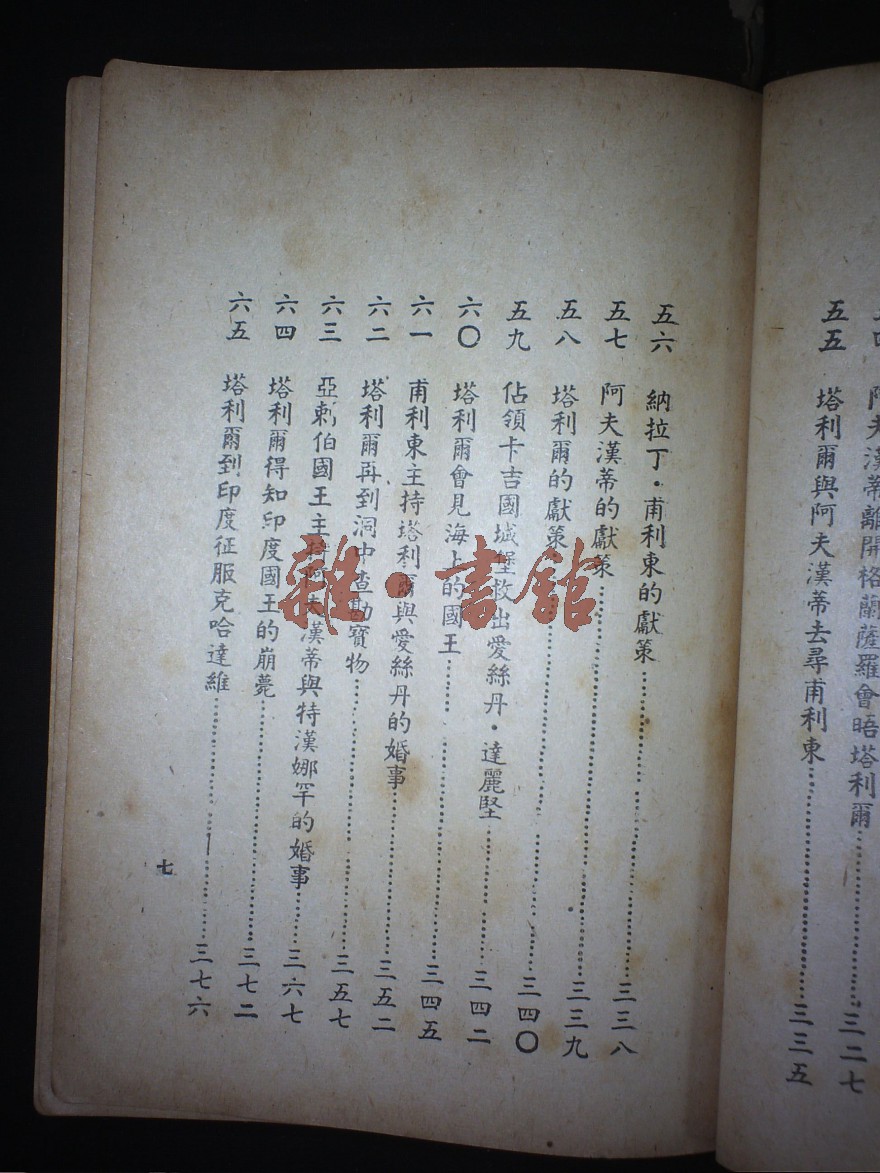 阿夫漢蒂離開格蘭薩羅會晤塔利爾……三二七
五五 塔利爾與阿夫漢蒂去尋甫利東……三三五
五六 納拉丁·甫利東的獻策……三三八
五七 阿夫漢蒂的獻策……三三九
五八 塔利爾的獻策……三四〇
五九 佔領卡吉國城堡救出愛絲丹·達麗堅……三四二
六〇 塔利爾會見海上的國王……三四五
六一 甫利東主持塔利爾與愛絲丹的婚事……三五二
六二 塔利爾再到洞中查勘寶物……三五七
六三 亞剌伯國王主持阿夫漢蒂與特漢娜罕的婚事……三六七
六四 塔利爾得知印度國王的崩薨……三七二
六五 塔利爾到印度征服克哈達維……三七六
七
雜·書館